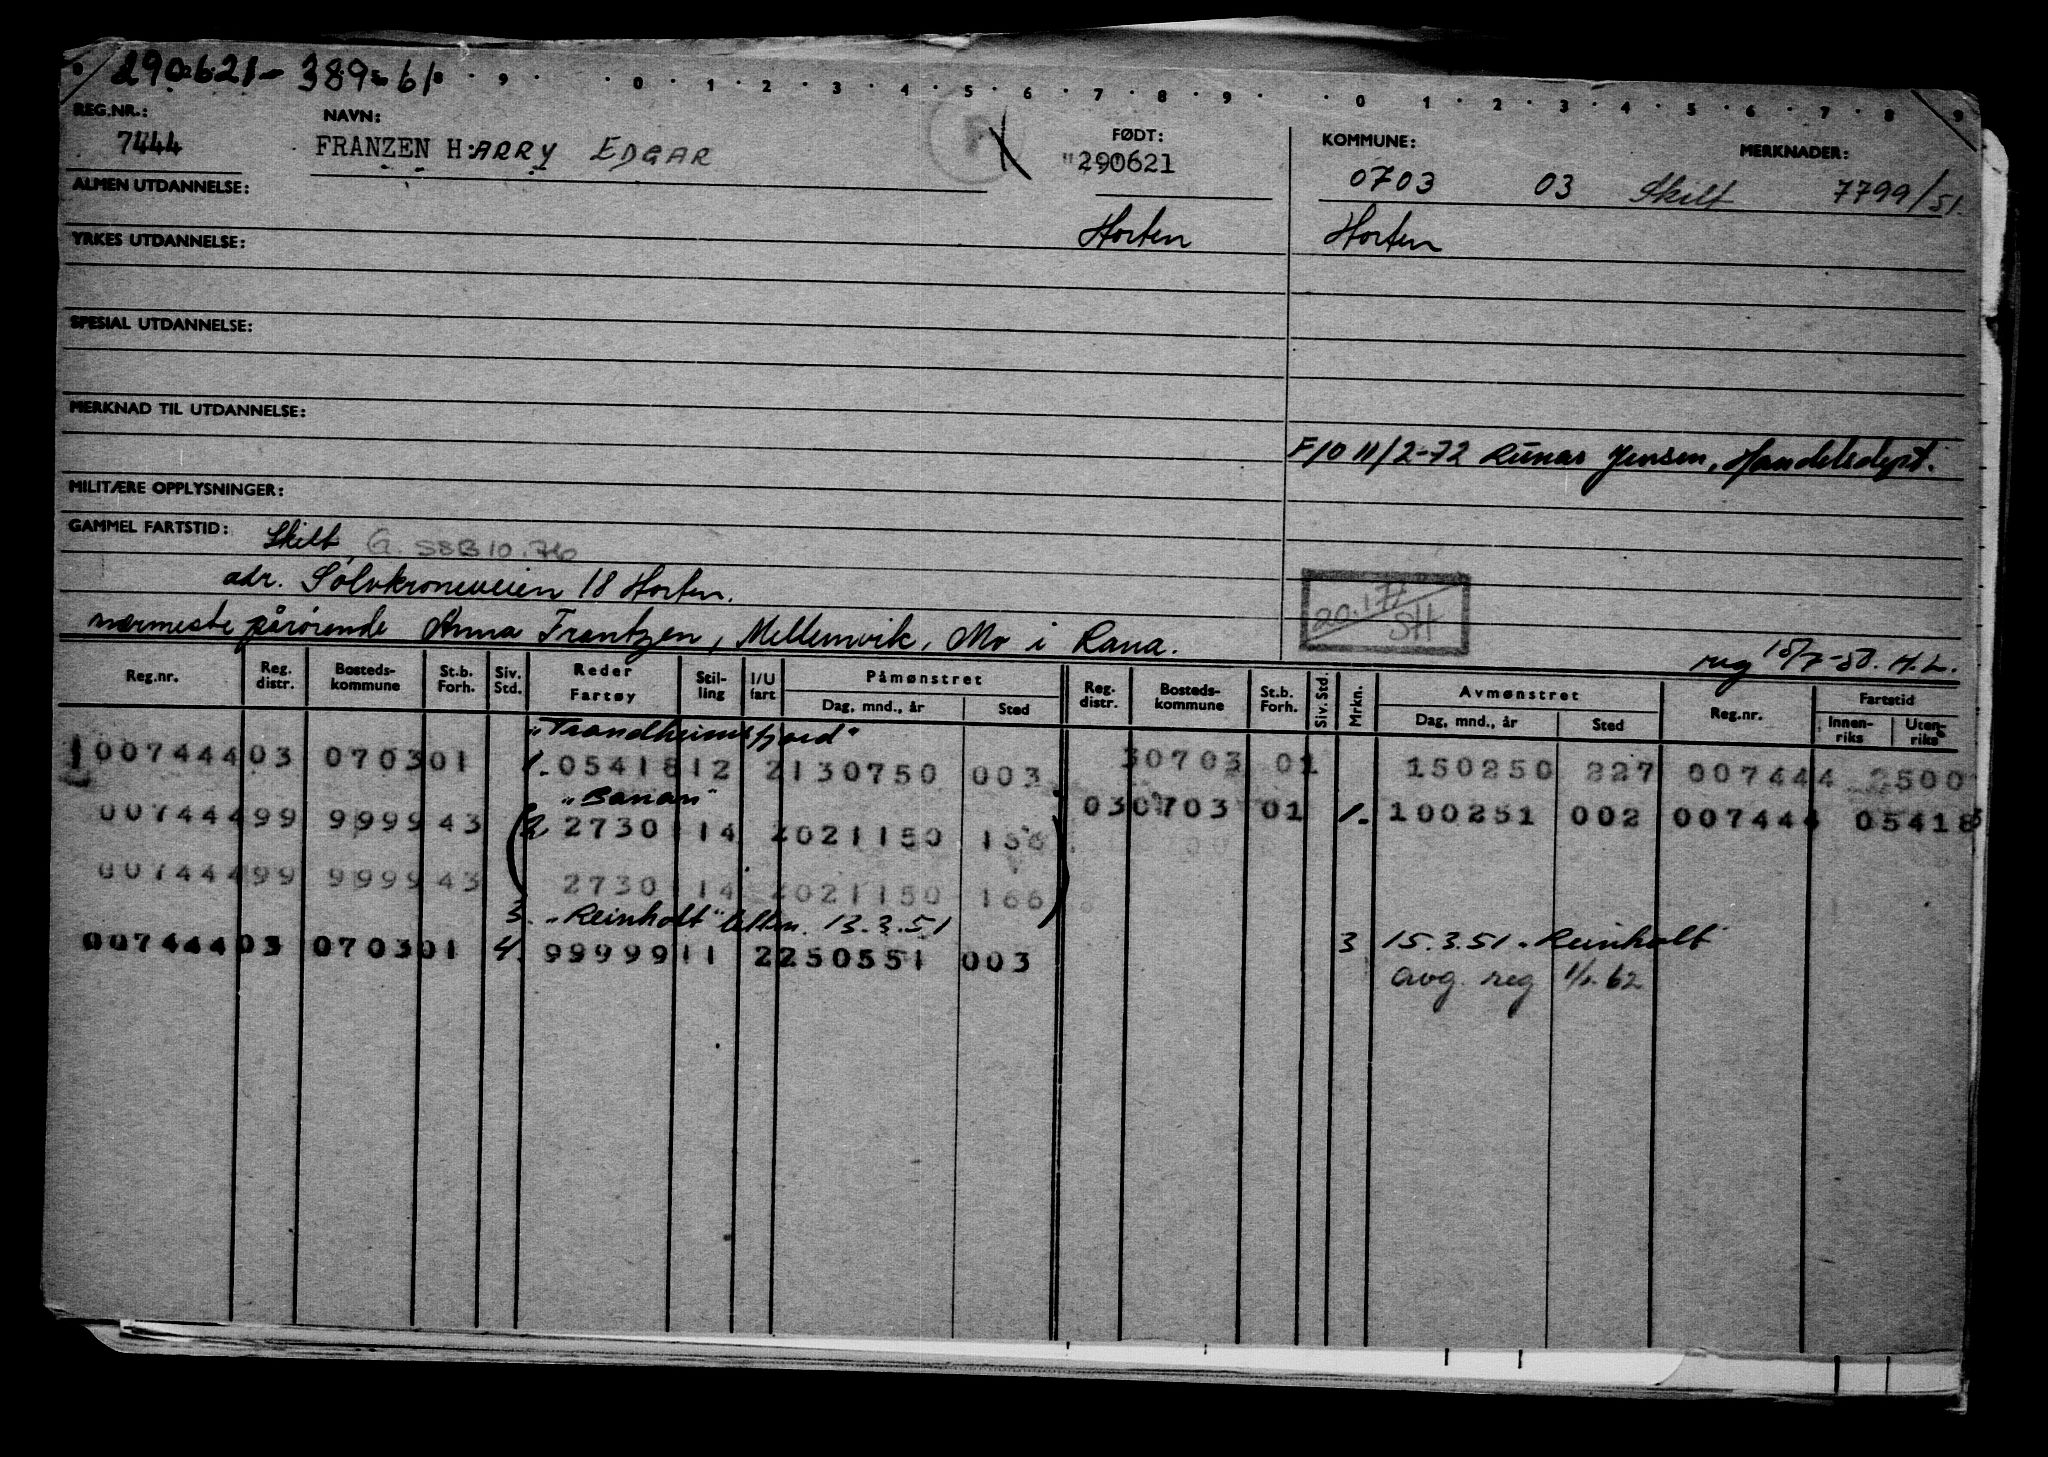 290621-389-61
9 0 1 2 3 4 5 6 7 8 9 0 1 2 3 4 5 6 7 8 9
REG.NR.: NAVN: FØDT: KOMMUNE: MERKNADER:
7444 FRANZEN HARRY EDGAR "290621 0703 03 Skilt 7799/51.
ALMEN UTDANNELSE:
YRKES UTDANNELSE: Horten Horten
SPESIAL UTDANNELSE:
MERKNAD TIL UTDANNELSE:
F/O 11/2-72 Runar Jensen, Handelsdept.
MILITÆRE OPPLYSNINGER:
GAMMEL FARTSTID: Skilt, G. SSB 10.76
adr. Sølvkroneveien 18 Horten.
20.177 SH
nærmeste pårørende Anna Frantzen, Mellemvik, Mo i Rana.
reg 15/7-50. H.L.
Reg.nr. Reg. distr. Bosteds-kommune St.b. Forh. Siv. Std. Reder Fartøy Stil-ling I/U fart Påmønstret Dag, mnd., år Sted Reg. distr. Bosteds-kommune St.b. Forh. Siv. Std. Mrkn. Avmønstret Dag, mnd., år Sted Reg.nr. Fartstid Innen-riks Uten-riks
"Trondheimsfjord"
007444 03 0703 01 1. 05418 12 2 130750 003 30703 01 150250 227 007444 2500
"Banan"
007444 99 9999 43 (2 2730 14 2 021150 03 0703 01 1. 100251 002 007444 05418
007444 99 9999 43 2730 14 2021150 166)
3. "Reinholt" 13.3.51
007444 03 0703 01 4. 99999 11 2 250551 003 3 15.3.51 "Reinholt"
avg. reg 62